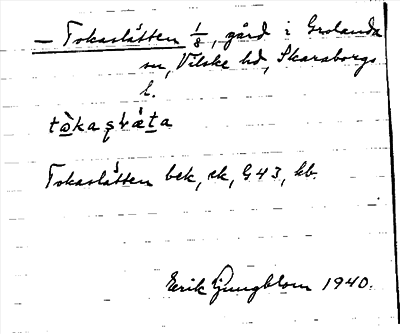 — Tokaslätten 1/8, gård i Grolanda
sn, Vilske hd, Skaraborgs
l.
Tokaslätten bek, ek, G 43, hb.
Erik Ljungblom 1940.